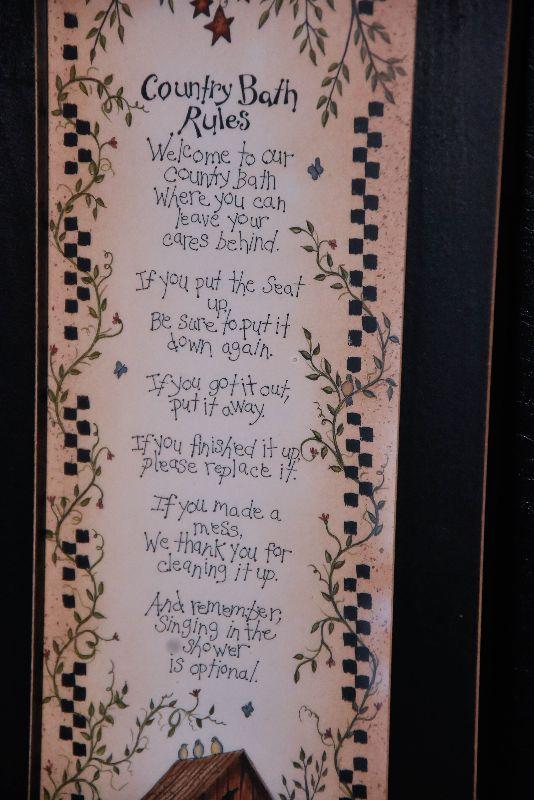 Country Bath
Rules
Welcome to our
Country Bath
Where you can
leave your
cares behind.
If you put the seat
up,
Be sure to put it
down again.
If you got it out,
put it away.
If you finished it up,
please replace it.
If you made a
mess,
We thank you for
cleaning it up.
And remember,
singing in the
shower
is optional.